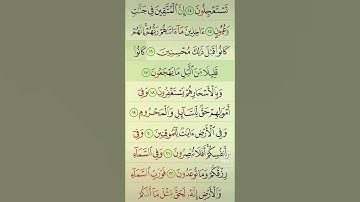 تَسْتَعْجِلُونَ ١٤ إِنَّ ٱلْمُتَّقِينَ فِى جَنَّٰتٍ
وَعُيُونٍ ١٥ ءَاخِذِينَ مَآ ءَاتَىٰهُمْ رَبُّهُمْ إِنَّهُمْ
كَانُوا۟ قَبْلَ ذَٰلِكَ مُحْسِنِينَ ١٦ كَانُوا۟
قَلِيلًا مِّنَ ٱلَّيْلِ مَا يَهْجَعُونَ ١٧
وَبِٱلْأَسْحَارِ هُمْ يَسْتَغْفِرُونَ ١٨ وَفِىٓ
أَمْوَٰلِهِمْ حَقٌّ لِّلسَّآئِلِ وَٱلْمَحْرُومِ ١٩
وَفِى ٱلْأَرْضِ ءَايَٰتٌ لِّلْمُوقِنِينَ ٢٠ وَفِىٓ
أَنفُسِكُمْ أَفَلَا تُبْصِرُونَ ٢١ وَفِى ٱلسَّمَآءِ
رِزْقُكُمْ وَمَا تُوعَدُونَ ٢٢ فَوَرَبِّ ٱلسَّمَآءِ
وَٱلْأَرْضِ إِنَّهُۥ لَحَقٌّ مِّثْلَ مَآ أَنَّكُمْ